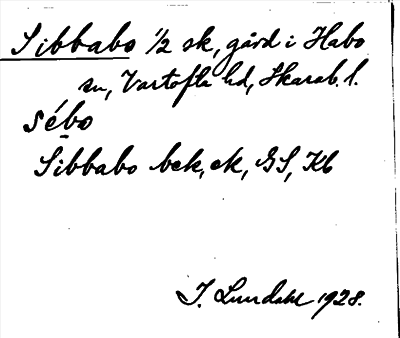 Sibbabo 1/2 sk, gård i Habo
sn, Vartofta hd, Skarab. l.
sébo
Sibbabo bek, ek, GS, Kb
I. Lundahl 1928.